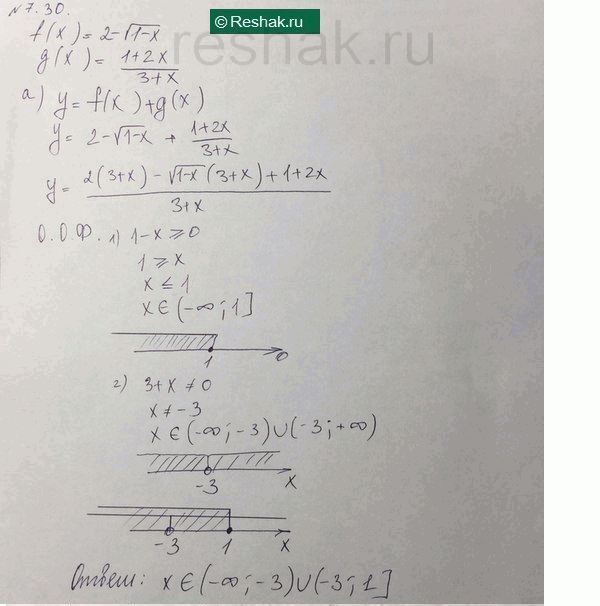 © Reshak.ru
reshak.ru
№7.30.
f(x) = 2-√1-x
g(x) = 1+2x / 3+x
а) y = f(x)+g(x)
y = 2-√1-x + 1+2x / 3+x
y = 2(3+x) - √1-x (3+x) + 1+2x / 3+x
О.О.Ф. 1) 1-x ≥ 0
1 ≥ x
x ≤ 1
x ∈ (-∞; 1]
1 0
2) 3+x ≠ 0
x ≠ -3
x ∈ (-∞; -3) ∪ (-3; +∞)
-3 x
-3 1 x
Ответ: x ∈ (-∞; -3) ∪ (-3; 1]